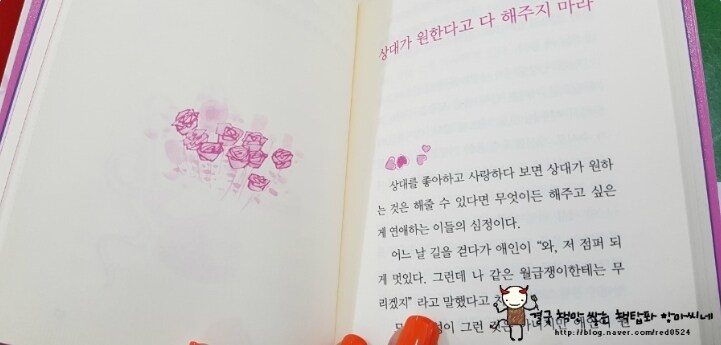 상대가 원한다고 다 해주지 마라
상대를 좋아하고 사랑하다 보면 상대가 원하
는 것은 해줄 수 있다면 무엇이든 해주고 싶은
게 연애하는 이들의 심정이다.
어느 날 길을 걷다가 애인이 “와, 저 점퍼 되
게 멋있다. 그런데 나 같은 월급쟁이한테는 무
리겠지” 라고 말했다고
이 그런 것은 아니지만 애인이 원
결국 책만 쌓는 책탑파 항마씨네
http://blog.naver.com/red0524